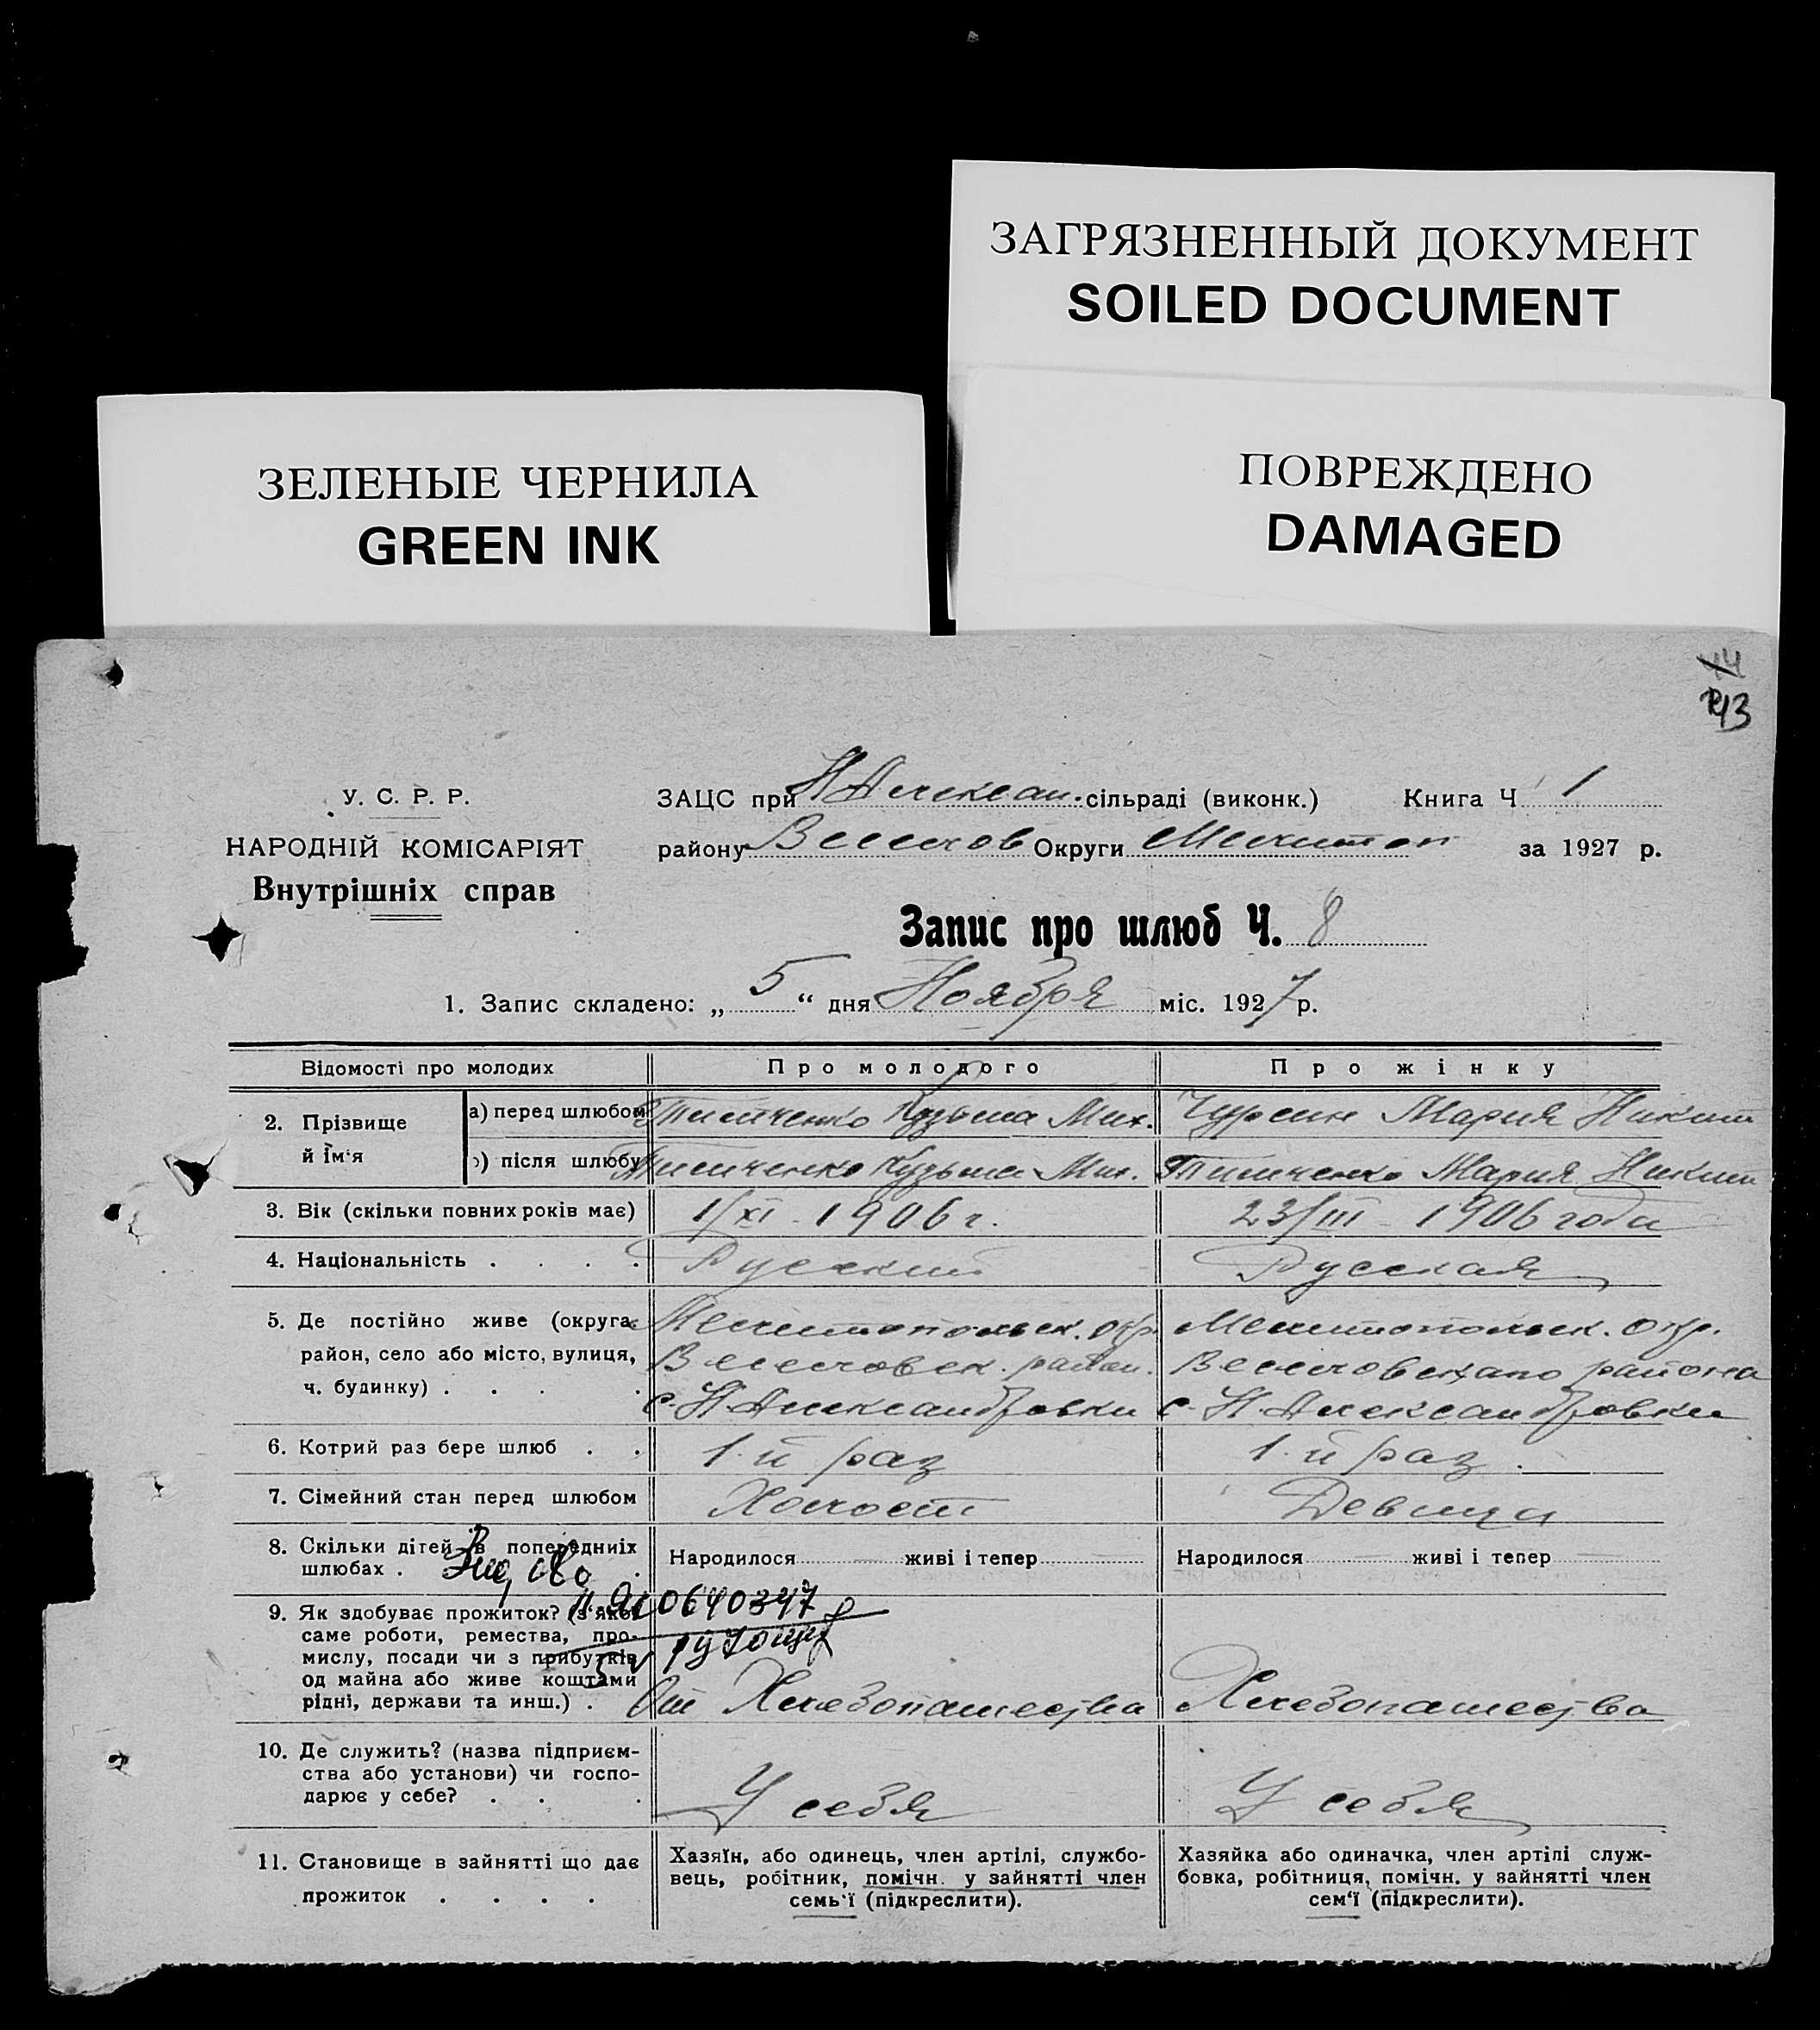 ЗАГРЯЗНЕННЫЙ ДОКУМЕНТ
SOILED DOCUMENT
ЗЕЛЕНЫЕ ЧЕРНИЛА
GREEN INK
ПОВРЕЖДЕНО
DAMAGED
44
43
У. С. Р. Р.
НАРОДНІЙ КОМІСАРІЯТ
Внутрішніх справ
ЗАЦС при Н Алексан. сільраді (виконк.) Книга Ч 1
району Веселов Округи Мелитоп за 1927 р.
Запис про шлюб Ч. 8
1. Запис складено: „ 5 “ дня Ноября міс. 1927 р.
Відомості про молодих Про молодого Про жінку
2. Прізвище й Їм‘я
а) перед шлюбом Кузьма Мих. Мария Никит
б) після шлюбу Кузьма Мих. Мария Никит
3. Вік (скільки повних років має) 1/XI - 1906 г. 23/III - 1906 года
4. Національність . . . . Русский Русская
5. Де постійно живе (округа, район, село або місто, вулиця, ч. будинку) . . . .
Мелитопольск. окр. Веселовск. район. с. Н. Александровки
Мелитопольск. окр. Веселовскаго района с. Н. Александровки
6. Котрий раз бере шлюб . . 1-й раз 1-й раз.
7. Сімейний стан перед шлюбом Холост Девица
8. Скільки дітей в попередниіх шлюбах . .
Народилося живі і тепер Народилося живі і тепер
0640347
9. Як здобуває прожиток? (з якої
саме роботи, ремества, про-
мислу, посади чи з прибутків
од майна або живе коштами
рідні, держави та инш.) . От Хлебопашества Хлебопашества
10. Де служить? (назва підприєм-
ства або установи) чи госпо-
дарює у себе? . . . У себя У себя
11. Становище в зайнятті що дає
прожиток . . . .
Хазяїн, або одинець, член артілі, службо-
вець, робітник, помічн. у зайнятті член
семь‘ї (підкреслити).
Хазяйка або одиначка, член артілі служ-
бовка, робітниця, помічн. у зайнятті член
сем‘ї (підкреслити).